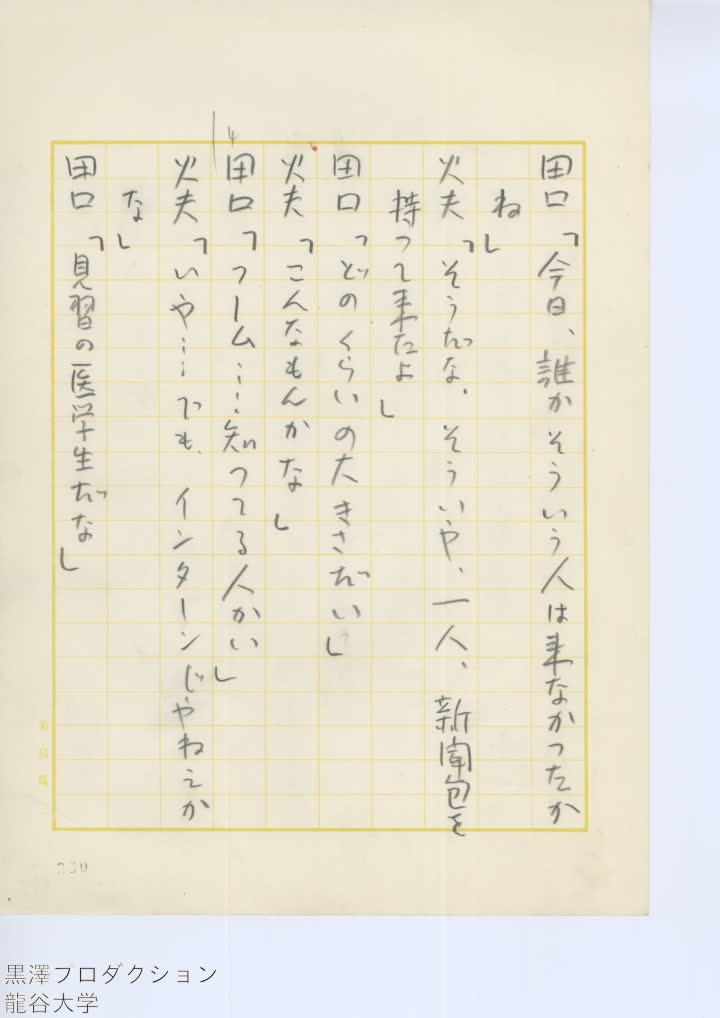 田口「今日、誰かそういう人は来なかったか
ね」
火夫「そうだな、そういや、一人、新聞包を
持って来たよ」
田口「どのくらいの大きさだい」
火夫「こんなもんかな」
田口「フーム……知ってる人かい」
火夫「いや……でも、インターンじゃねえか
な」
田口「見習の医学生だな」
黒澤プロダクション
龍谷大学